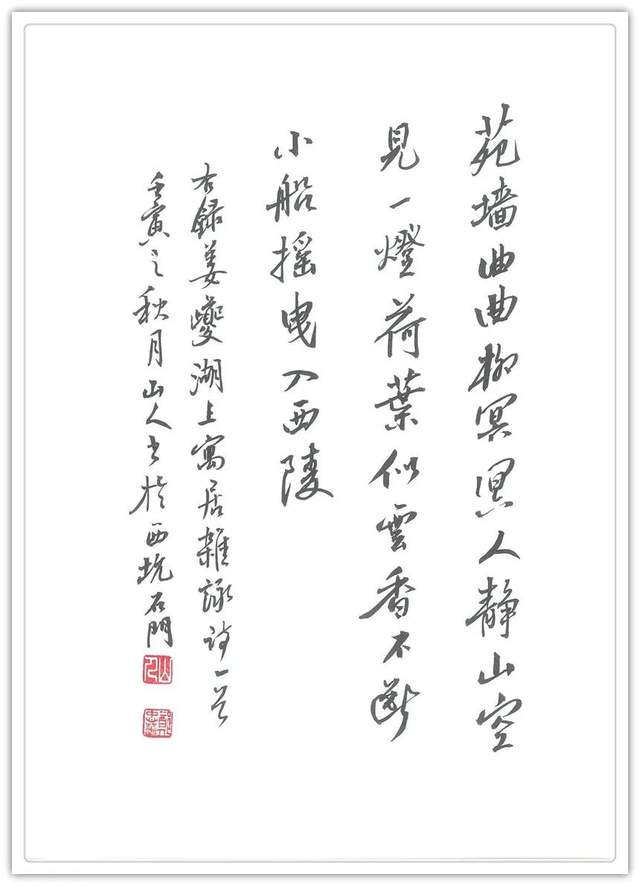 苑墙曲曲柳冥冥人静山空
見一燈荷葉似雲香不斷
小船摇曳入西陵
右録姜夔湖上寓居雜詠诗一首
壬寅之秋月山人书於西坑石門
山人